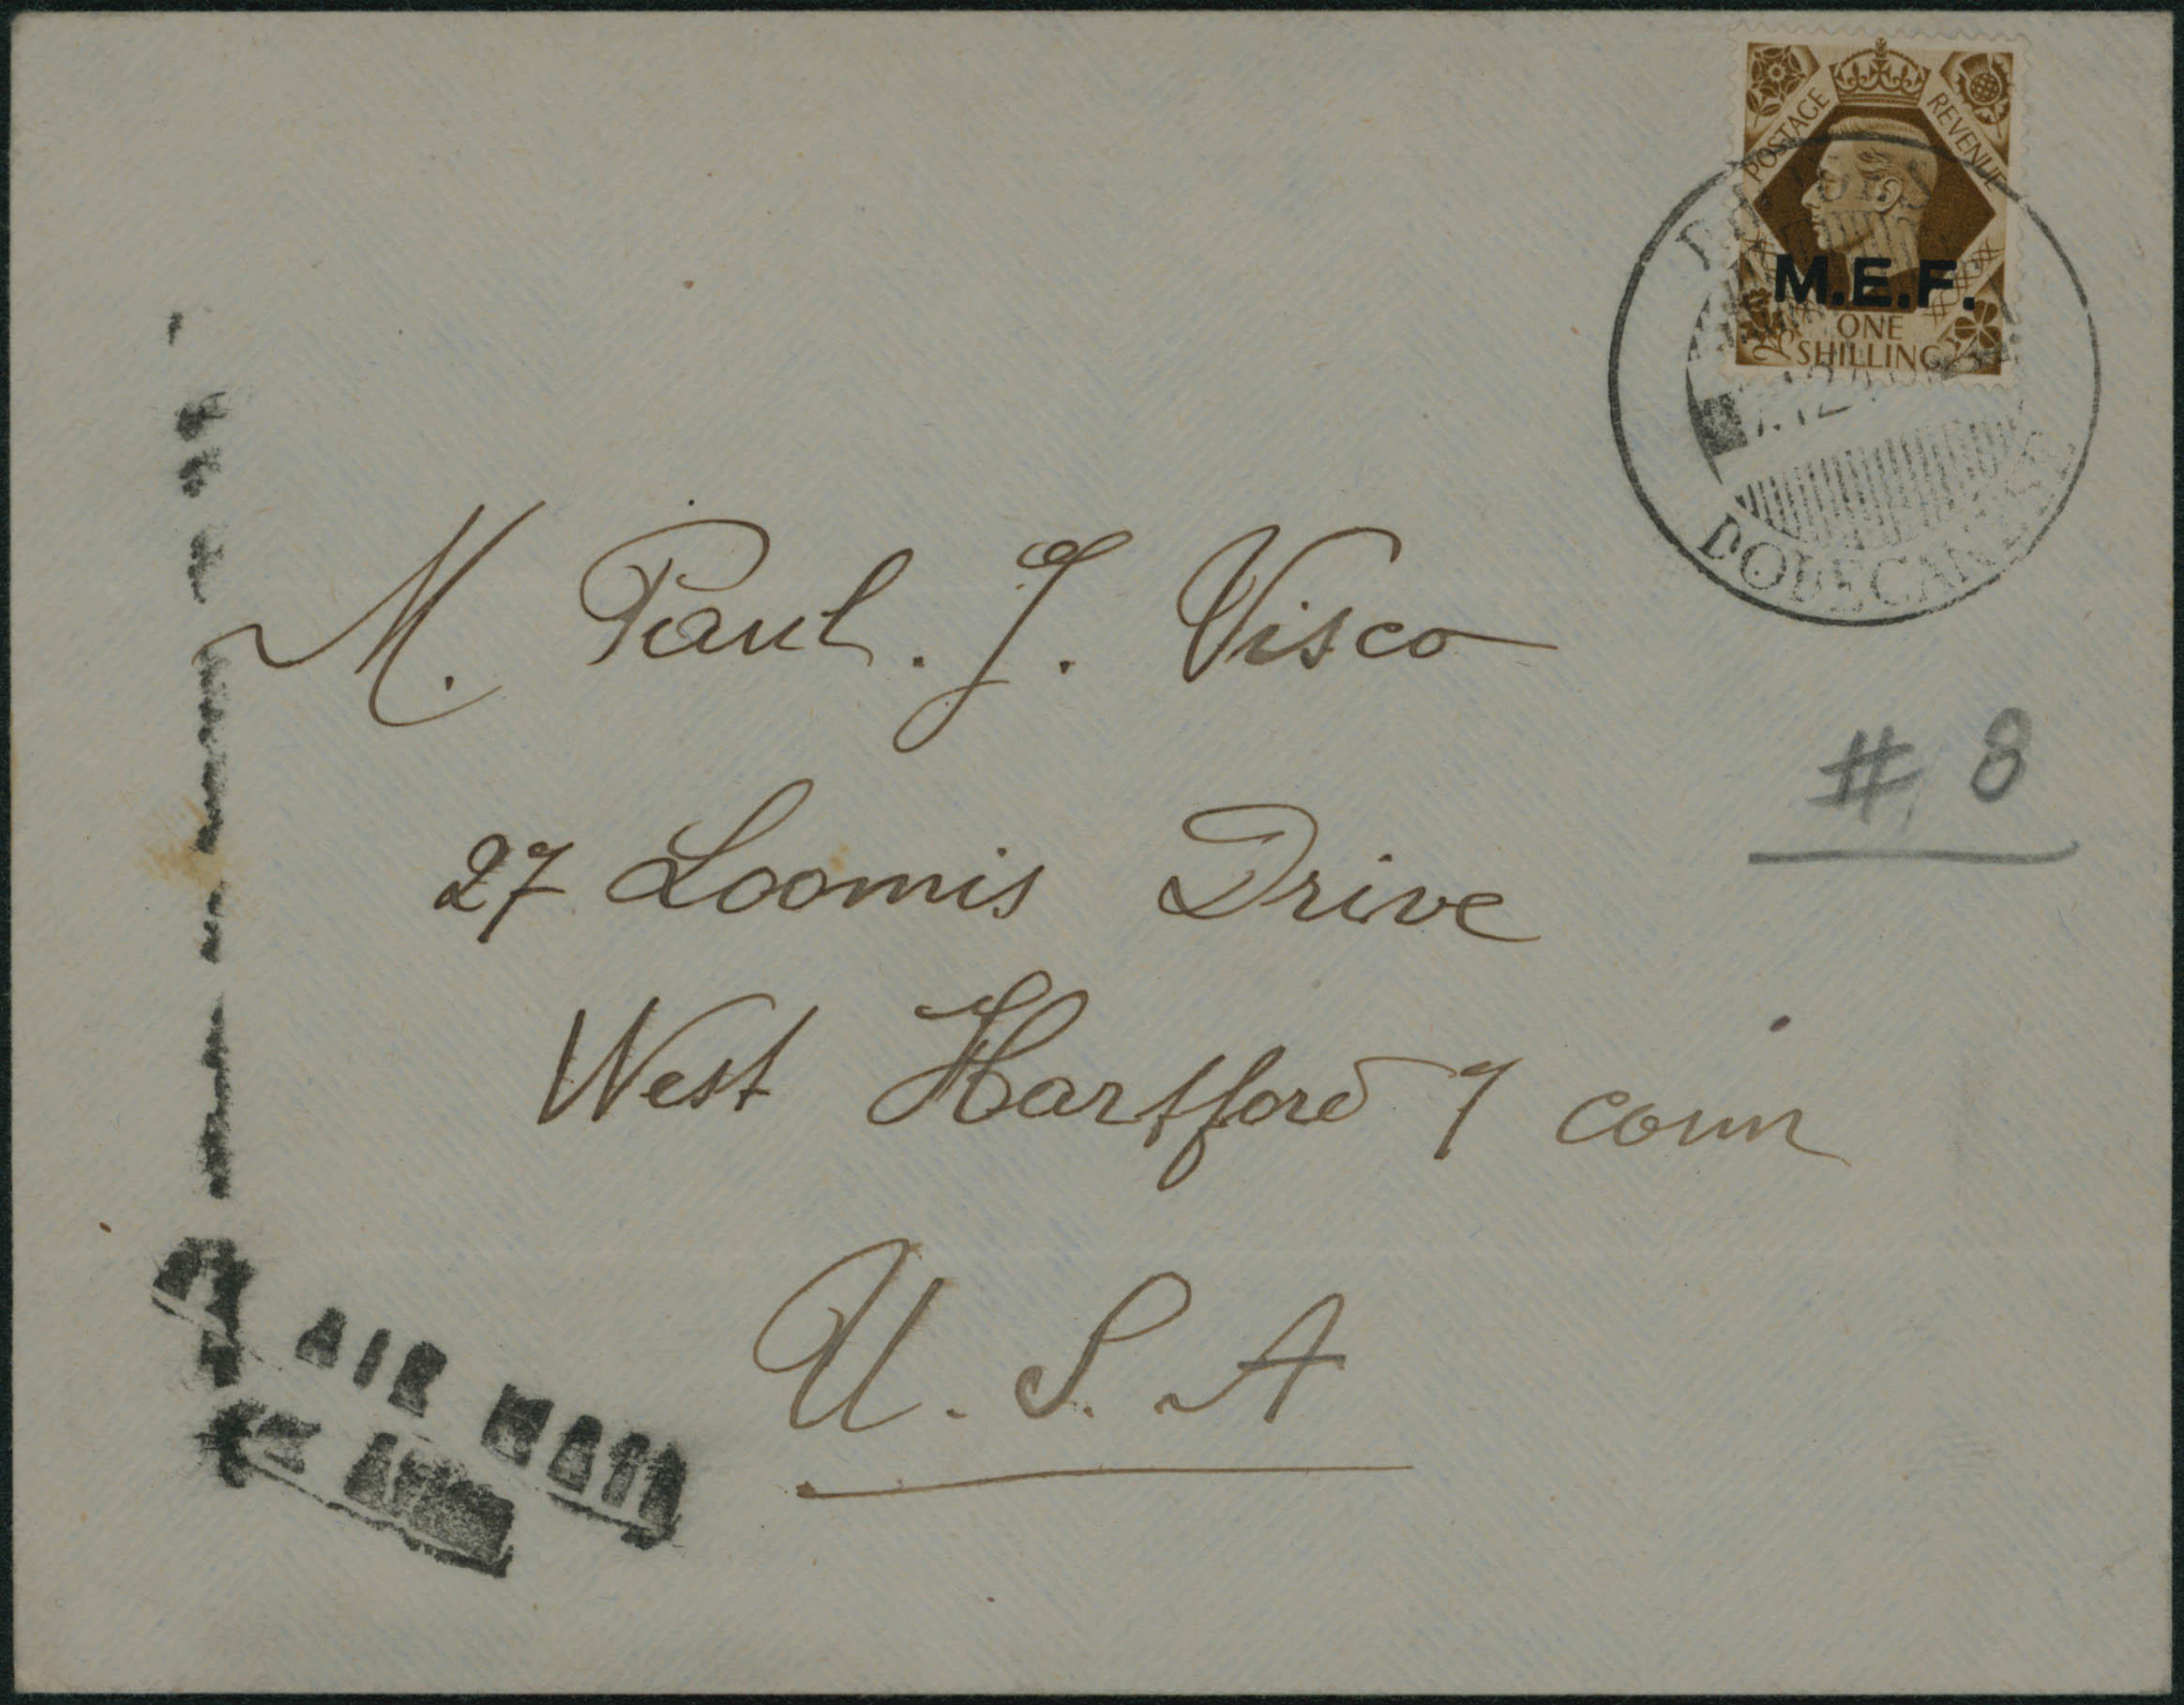 POSTAGE REVENUE
M.E.F.
ONE
SHILLING
DODECANESE
M. Paul. J. Visco
# 8
27 Loomis Drive
West Hartford 7 conn
U. S. A
AIR MAIL